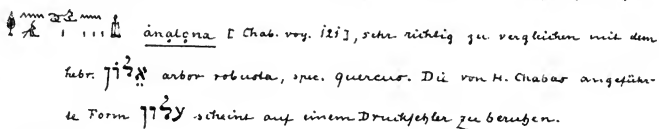 ánạlọna [Chab. voy. 121], sehr richtig zu vergleichen mit dem
hebr. אֵלוֹן arbor robusta, spec. quercus. Die von H. Chabas angeführ-
te Form עלון scheint auf einem Druckfehler zu beruhen.